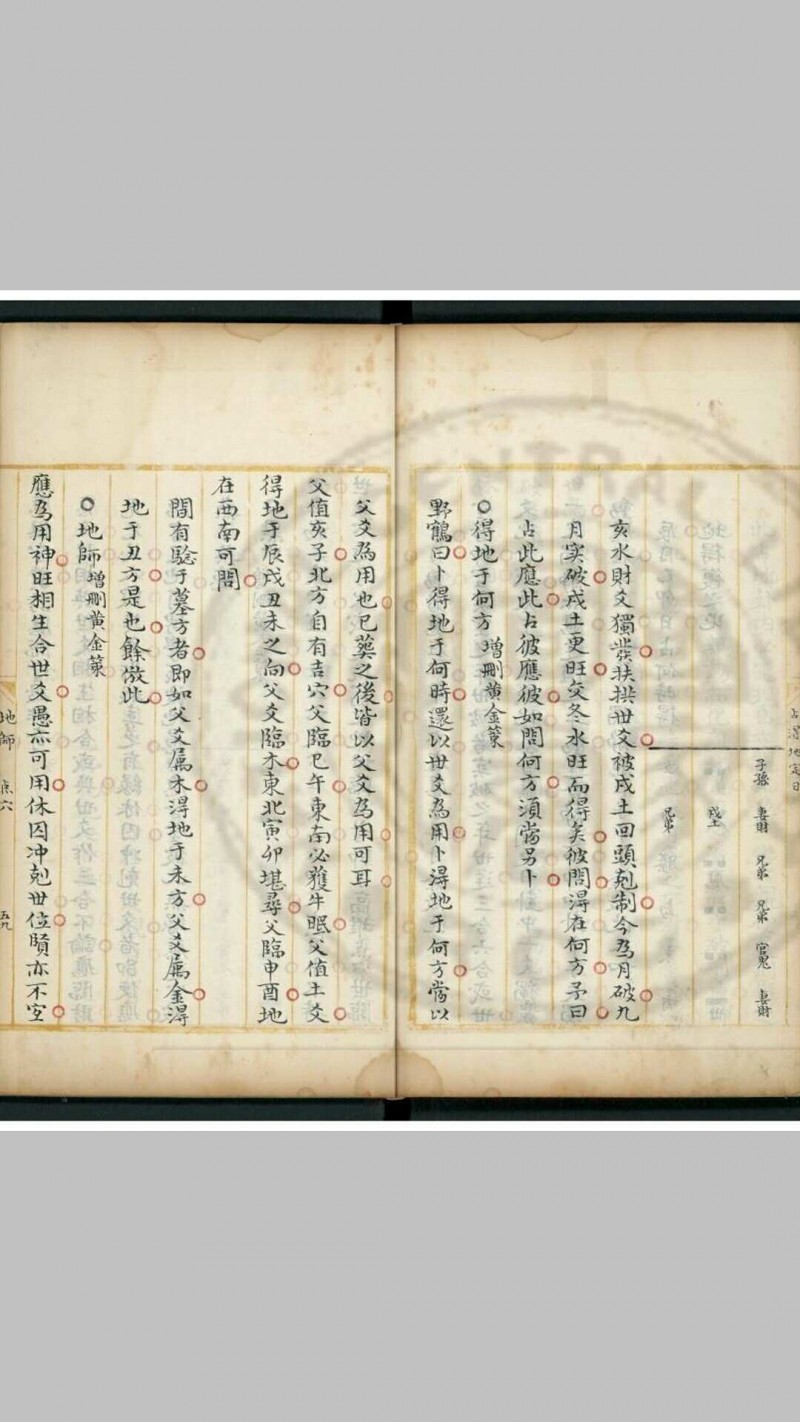 子孫 妻財 兄弟 兄弟 官鬼 妻財
戌土
兄弟
亥水財爻獨發扶拱世爻被戌土回頭剋制今為月破九
月实破戌土更旺交冬水旺而得矣彼問淂在何方予曰
占此應此占彼應彼如問何方湏當另卜
○得地于何方 增刪黄金策
野鶴曰卜得地于何時還以世爻為用卜淂地于何方當以
父爻為用也已葵之後皆以父爻為用可耳
父值亥子北方自有吉穴父臨巳午東南必獲牛眠父值土爻
得地于辰戌丑未之向父爻臨木東北寅卯堪尋父臨申酉地
在西南可問
間有驗于墓方者即如父爻属木淂地于未方父爻属金淂
地于丑方是也餘倣此
○地師 增刪黄金策
應為用神旺相生合世爻愚亦可用休囚冲剋世位賢亦不宜
地師 点穴 五九